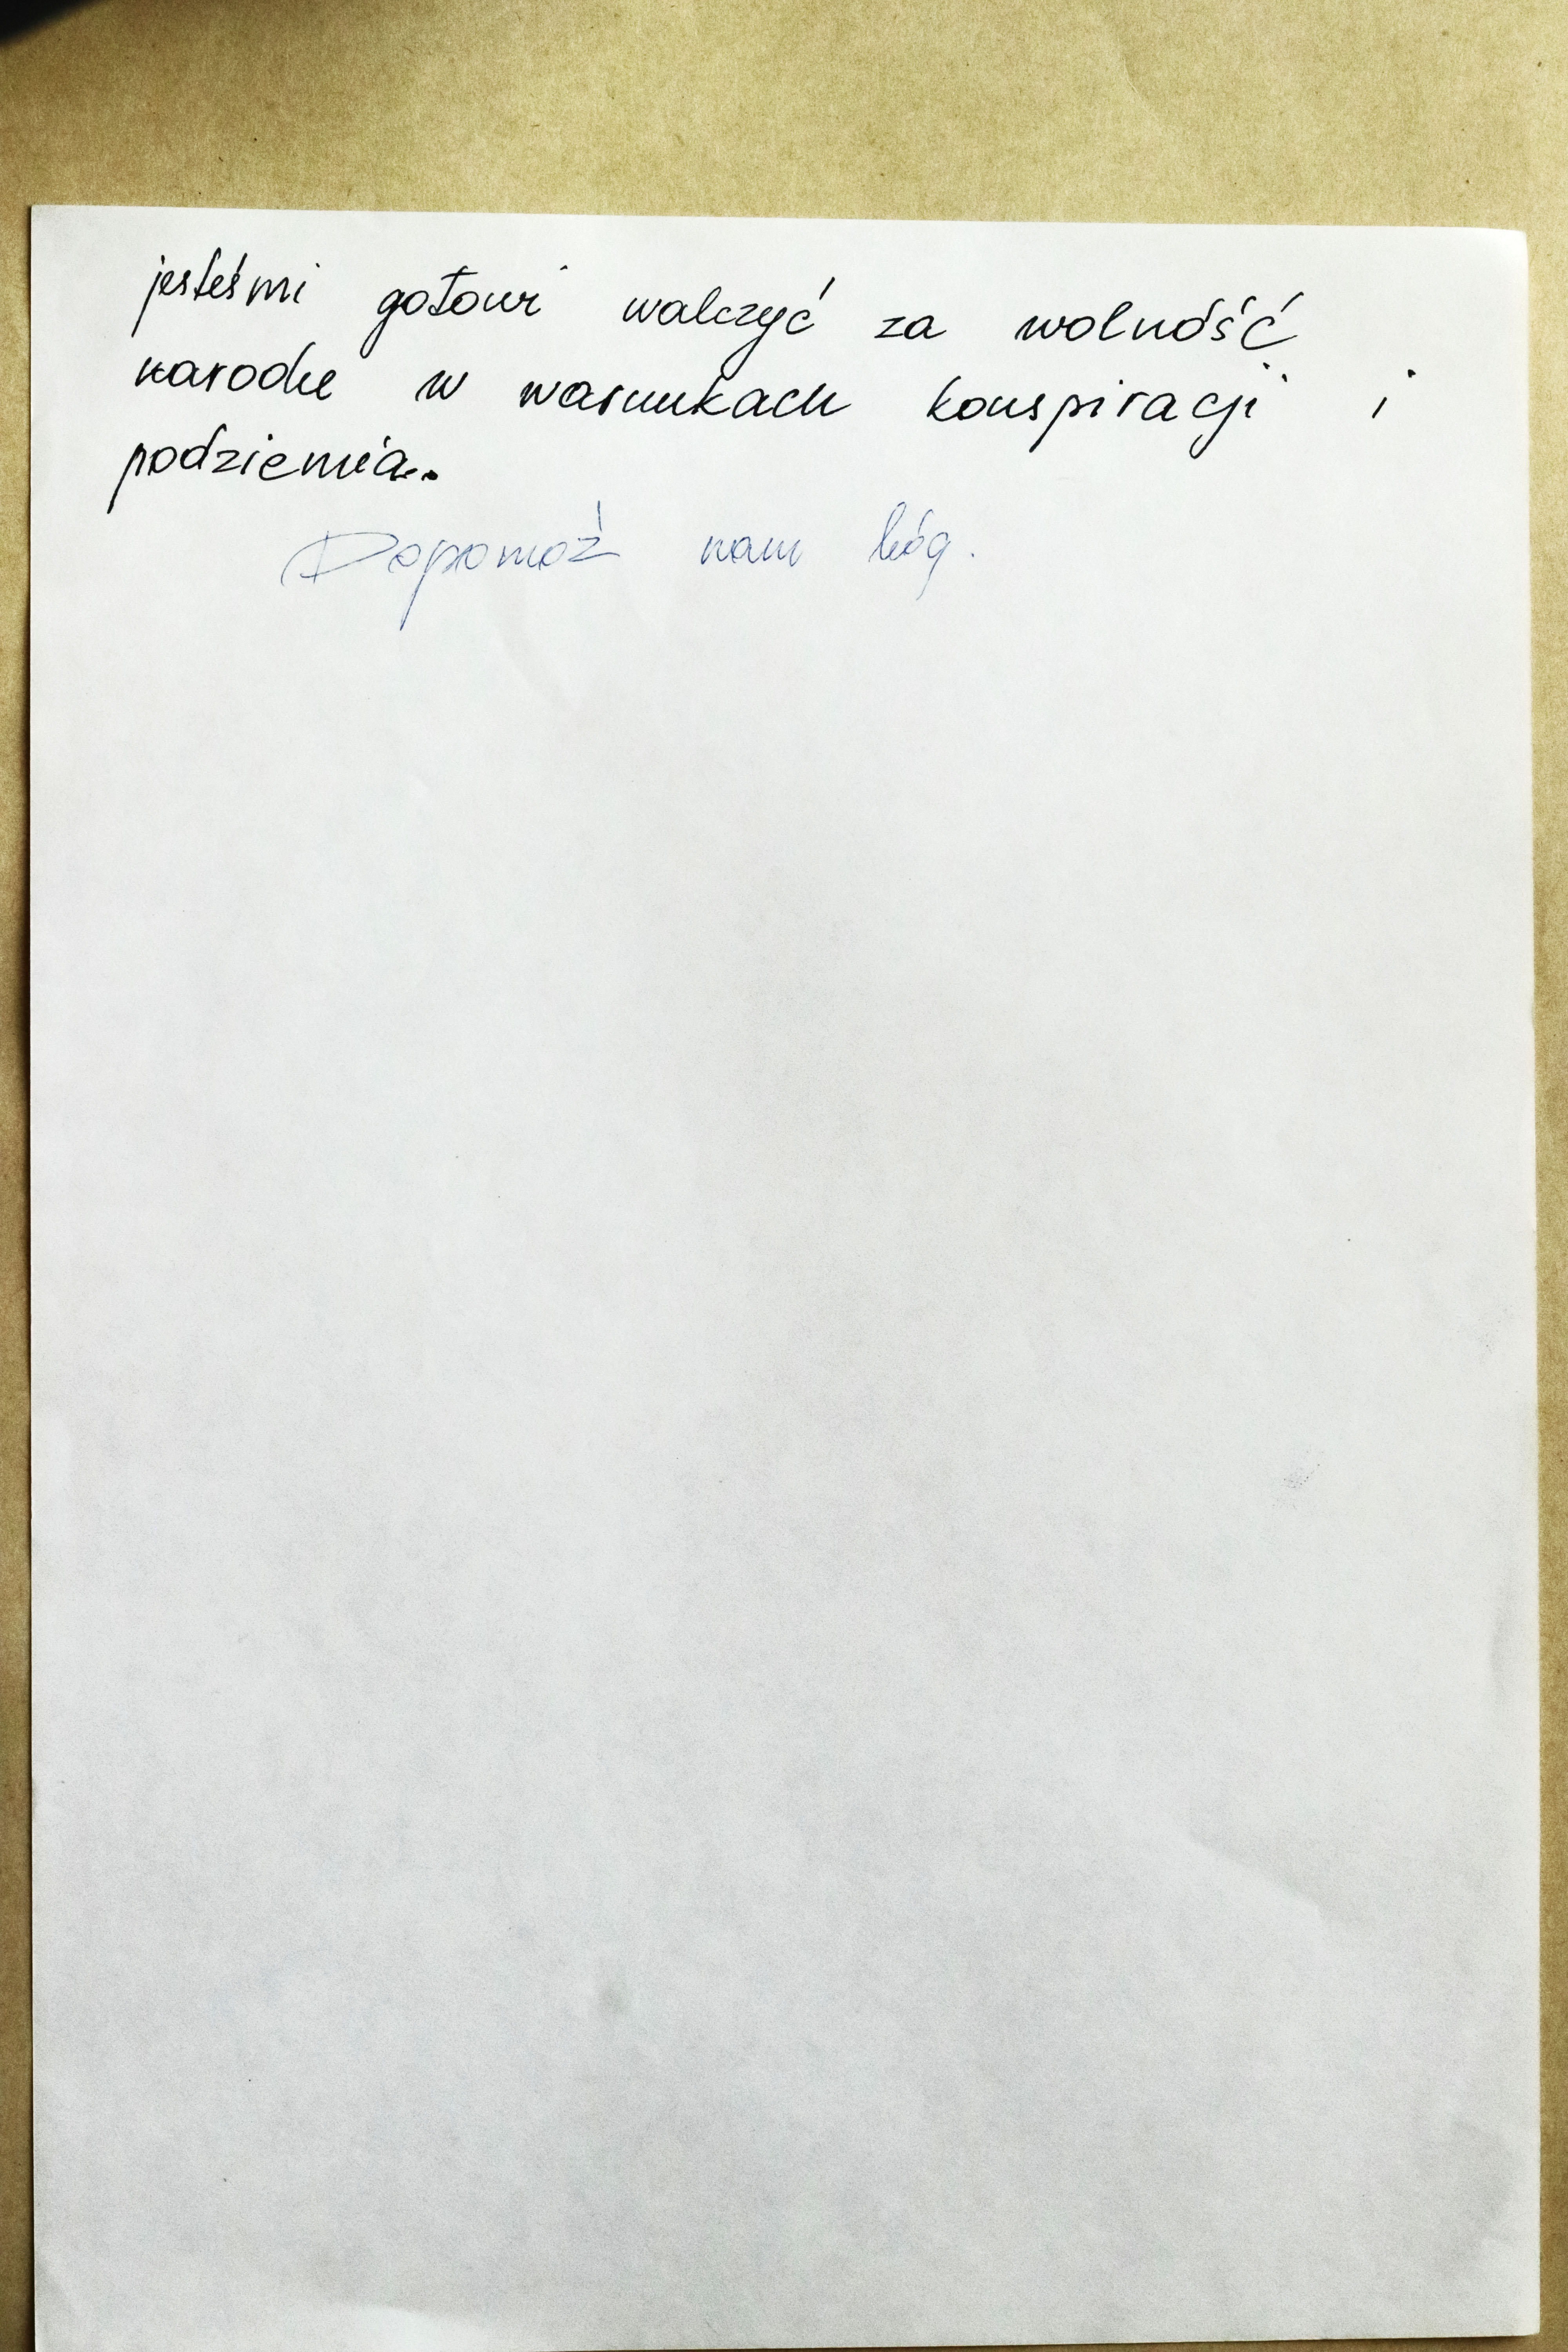 jesteśmi gotowi walczyć za wolność
narodu w warunkach konspiracji i
podziemia.
Dopomoż nam bóg.